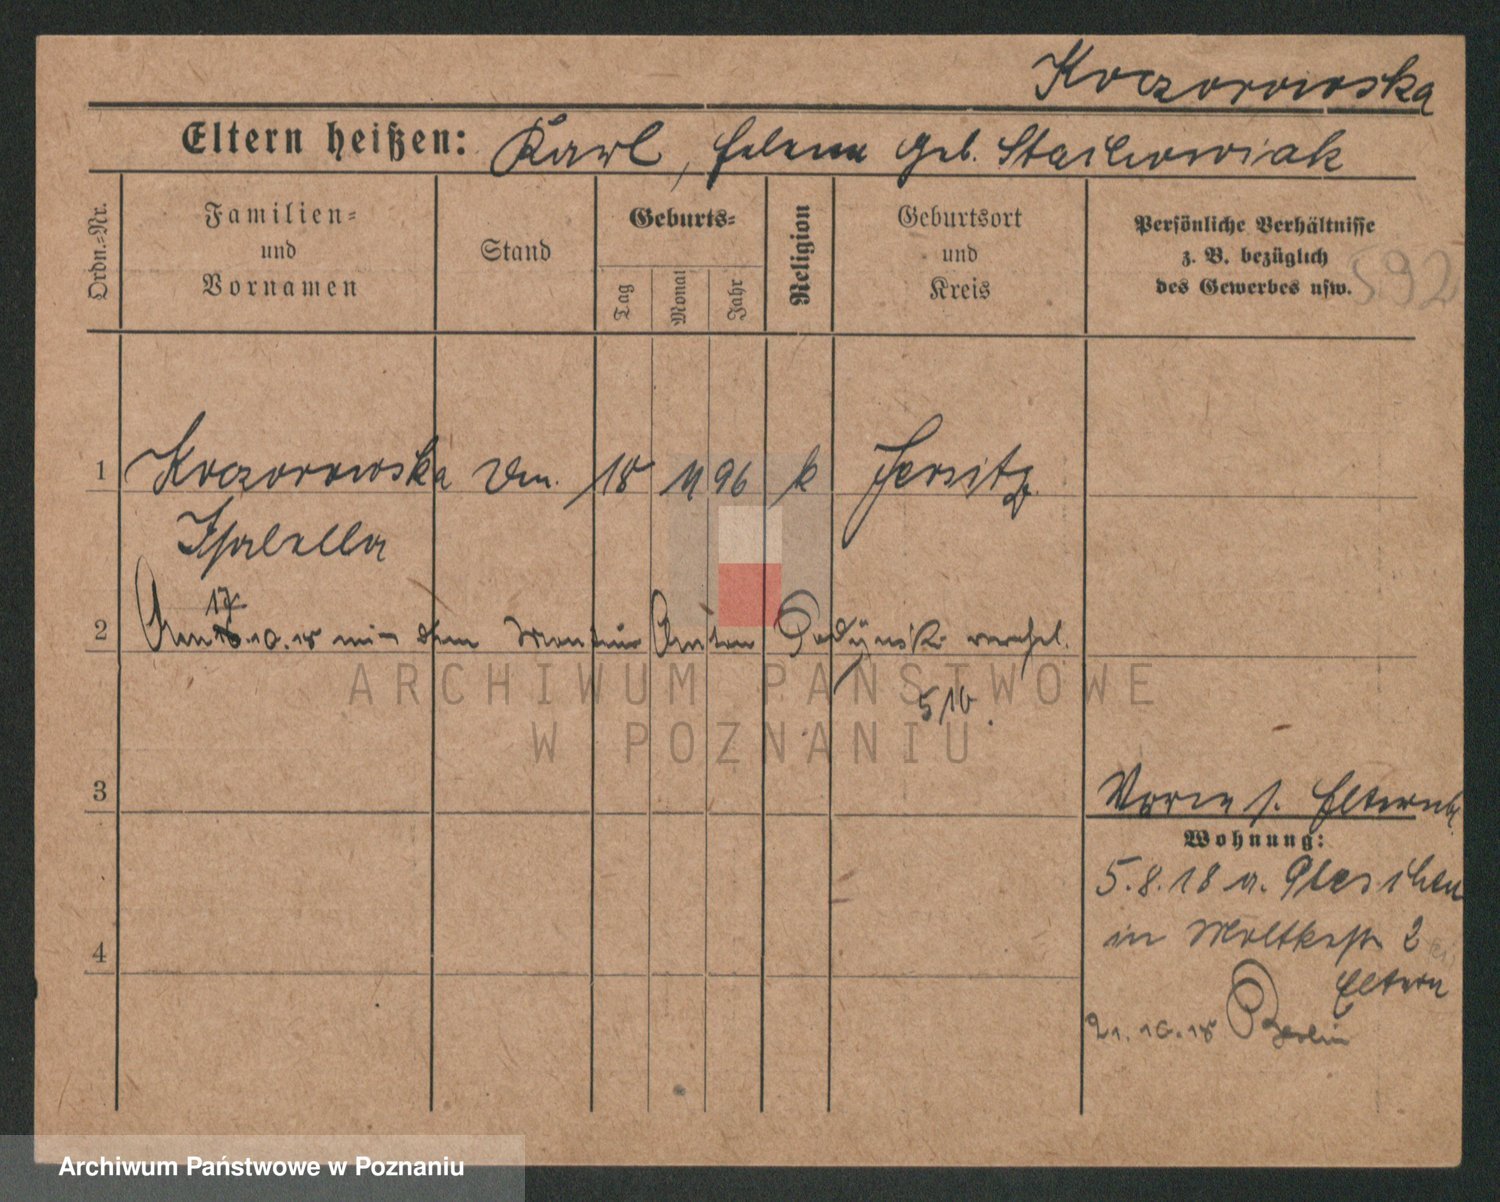 Koczorowska
Eltern heißen: Karl, Helena geb. Stachowiak
Ordn.=Nr.
Familien=
und
Vornamen
Stand
Geburts=
Tag
Monat
Jahr
Religion
Geburtsort
und
Kreis
Persönliche Verhältnisse
z. B. bezüglich
des Gewerbes usw.
592
1 Koczorowska 18 11 96 k Jersitz
Isabella
17
2 Am 10. 18 mit dem Monteur Anton verehel.
510.
3
Eltern
Wohnung:
5. 8. 18 a. Pleschen
in Moltkestr 2
4
Eltern
21. 10. 18 Berlin
ARCHIWUM PAŃSTWOWE
W POZNANIU
Archiwum Państwowe w Poznaniu